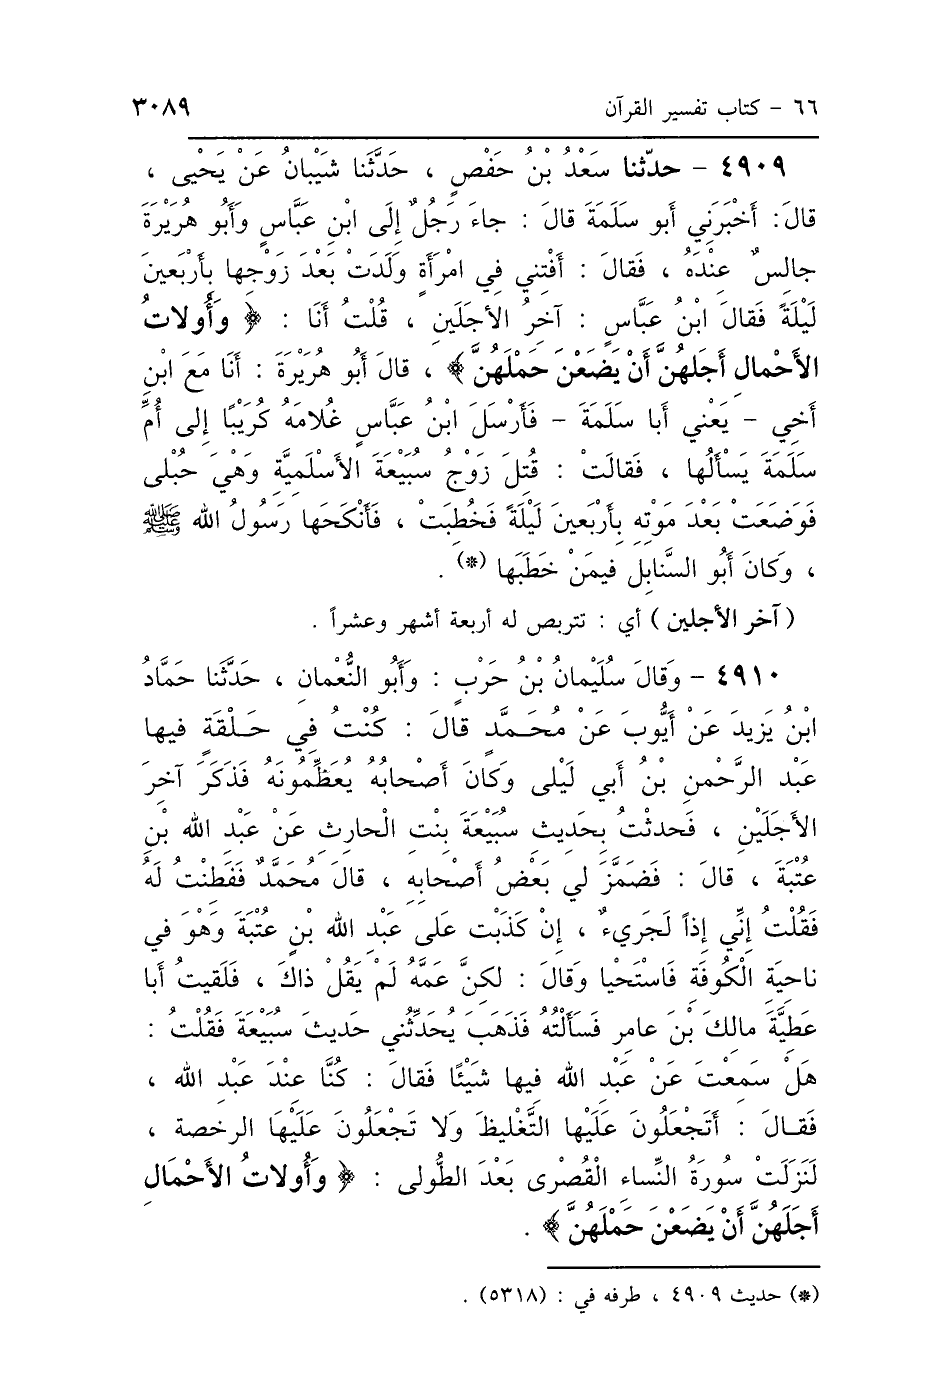 ٦٦ - كتاب تفسير القرآن ٣٠٨٩
٤٩٠٩ - حدّثنا سَعْدُ بْنُ حَفْصٍ ، حَدَّثَنا شَيْبانُ عَنْ يَحْيى ،
قالَ: أَخْبَرَنِي أبو سَلَمَةَ قالَ : جاءَ رَجُلٌ إلَى ابْنِ عَبَّاسٍ وَأَبُو هُرَيْرَةَ
جالِسٌ عِنْدَهُ ، فَقالَ : أَفْتِنِي فِي امْرَأَةٍ وَلَدَتْ بَعْدَ زَوْجِها بِأَرْبَعِينَ
لَيْلَةً فَقالَ ابْنُ عَبَّاسٍ : آخِرُ الأجَلَينِ ، قُلْتُ أَنَا : ﴿ وَأُولاتُ
الأَحْمالِ أَجَلهُنَّ أَنْ يَضَعْنَ حَمْلَهُنَّ ﴾ ، قالَ أَبُو هُرَيْرَةَ : أَنَا مَعَ ابْنِ
أَخِي - يَعْنِي أبا سَلَمَةَ - فَأَرْسَلَ ابْنُ عَبَّاسٍ غُلامَهُ كُرَيْبًا إلى أُمِّ
سَلَمَةَ يَسْأَلُها ، فَقالَتْ : قُتِلَ زَوْجُ سُبَيْعَةَ الأَسْلَمِيَّةِ وَهْيَ حُبْلى
فَوَضَعَتْ بَعْدَ مَوْتِهِ بِأَرْبَعِينَ لَيْلَةً فَخُطِبَتْ ، فَأَنْكَحَها رَسُولُ اللهِ ﷺ
، وَكانَ أَبُو السَّنابِلِ فيمَنْ خَطَبَها (*) .
( آخر الأجلين ) أي : تتربص له أربعة أشهر وعشراً .
٤٩١٠ - وَقالَ سُلَيْمانُ بْنُ حَرْبٍ : وَأَبُو النُّعْمانِ ، حَدَّثَنا حَمَّادُ
ابْنُ يَزِيدَ عَنْ أَيُّوبَ عَنْ مُحَمَّدٍ قالَ : كُنْتُ فِي حَلْقَةٍ فيها
عَبْدِ الرَّحْمنِ بْنُ أَبي لَيْلى وَكانَ أَصْحابُهُ يُعَظِّمُونَهُ فَذَكَرَ آخِرَ
الأَجَلَيْنِ ، فَحدثْتُ بِحَدِيثِ سُبَيْعَةَ بِنْتِ الْحارِثِ عَنْ عَبْدِ اللهِ بْنِ
عُتْبَةَ ، قالَ : فَضَمَّزَ لِي بَعْضُ أَصْحابِهِ ، قالَ مُحَمَّدٌ فَفَطِنْتُ لَهُ
فَقُلْتُ إنِّي إذاً لَجَرِيءٌ ، إنْ كَذَبْت عَلى عَبْدِ اللهِ بْنِ عُتْبَةَ وَهْوَ في
ناحِيَةِ الْكُوفَةِ فَاسْتَحْيا وَقالَ : لكِنَّ عَمَّهُ لَمْ يَقُلْ ذاكَ ، فَلَقيتُ أبا
عَطِيَّةَ مالكَ بْنَ عامرٍ فَسَأَلْتُهُ فَذَهَبَ يُحَدِّثُنِي حَدِيثَ سُبَيْعَةَ فَقُلْتُ :
هَلْ سَمِعْتَ عَنْ عَبْدِ اللهِ فيها شَيْئًا فَقالَ : كُنَّا عِنْدَ عَبْدِ اللهِ ،
فَقالَ : أَتَجْعَلُونَ عَلَيْها التَّغْلِيظَ وَلا تَجْعَلُونَ عَلَيْهَا الرخصة ،
لَنَزَلَتْ سُورَةُ النِّساءِ الْقُصْرى بَعْدَ الطُّولى : ﴿ وَأُولاتُ الأَحْمالِ
أَجَلَهُنَّ أَنْ يَضَعْنَ حَمْلَهُنَّ ﴾ .
(*) حديث ٤٩٠٩ ، طرفه في : (٥٣١٨) .